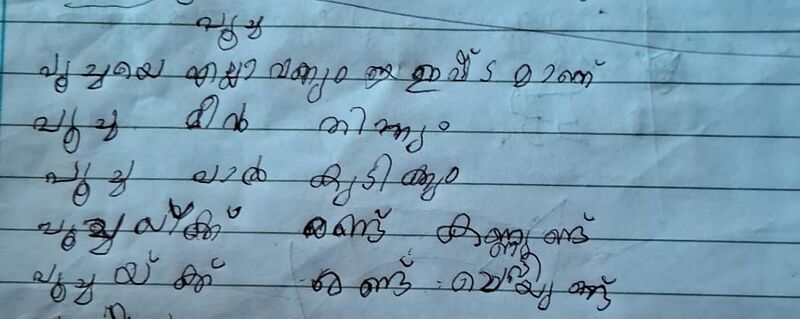 പൂച്ച
പൂച്ചയെ എല്ലാവർക്കും ഇഷ്ടമാണ്
പൂച്ച മീൻ തിന്നും
പൂച്ച പാൽ കുടിക്കും
പൂച്ചയ്ക്ക് രണ്ട് കണ്ണുണ്ട്
പൂച്ചയ്ക്ക് രണ്ട് ചെവിയുണ്ട്